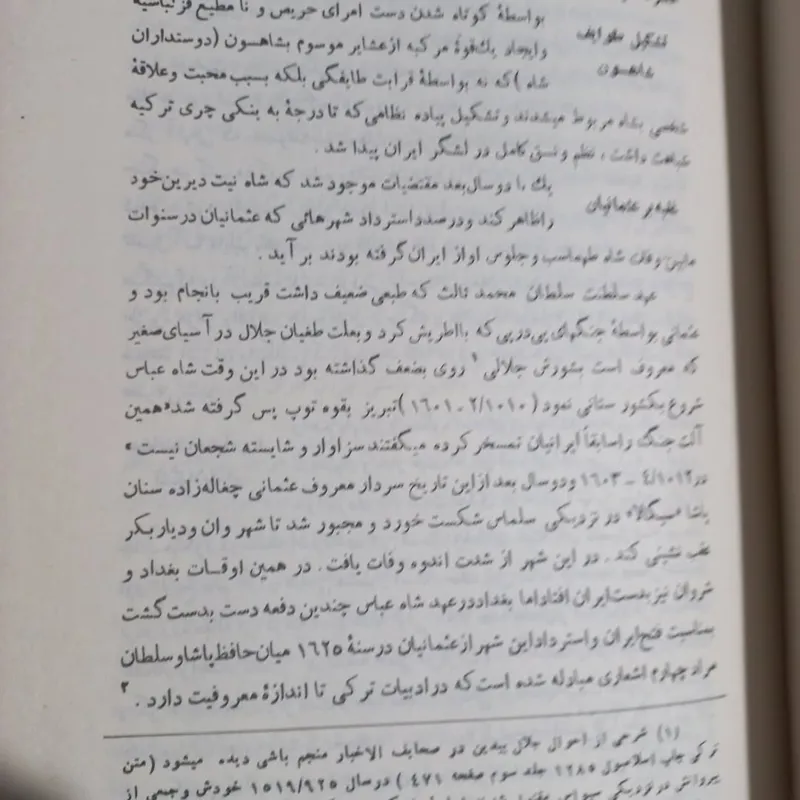 بواسطهٔ کوتاه شدن دست امرای حریص و نا مطیع قزلباشیه
تشکیل طوایف
شاهسون
وایجاد یك‌قوهٔ مرکبه ازعشایر موسوم بشاهسون (دوستداران
شاه )که نه بواسطهٔ قرابت طایفگی بلکه بسبب محبت وعلاقهٔ
شخصی بشاه مربوط میشدند وتشکیل پیاده نظامی‌که تادرجهٔ به ینکی چری ترکیه
شباهت داشت ، نظم و نسق کامل در لشگر ایران پیدا شد .
غلبه بر عثمانیان
یك یا دوسال‌بعد مقتضیات موجود شد که شاه نیت دیرین‌خود
راظاهر کند ودرصدداسترداد شهرهائی که عثمانیان درسنوات
مابین وفات شاه طهماسب وجلوس اواز ایران‌گرفته بودند بر آید .
عهد سلطنت سلطان محمد ثالث که طبعی ضعیف داشت قریب بانجام بود و
عثمانی بواسطهٔ جنگهای پی‌درپی‌که بااطریش کرد وبعلت طغیان جلال درآسیای‌صغیر
که معروف است بشورش جلالی ۱ روی بضعف گذاشته بود در این وقت شاه عباس
شروع بکشور ستانی نمود (۲/۱۰۱۰ ـ ۱۶۰۱ )تبریز بقوه توپ پس گرفته شد«همین
آلت‌جنگ راسابقاً ایرانیان تمسخر کرده میگفتند سزاوار و شایسته شجعان نیست »
در۴/۱۰۱۲ ـ ۱۶۰۳ ودوسال بعد ازاین تاریخ سردار معروف عثمانی چغاله‌زاده سنان
پاشا «سیگالا» در نزدیکی سلماس شکست خورد و مجبور شد تا شهر وان ودیاربکر
عقب نشینی کند . در این شهر از شدت اندوه وفات یافت . در همین اوقات بغداد و
شروان نیز بدست‌ایران افتاداما بغداددرعهد شاه عباس چندین دفعه دست بدست‌گشت
بمناسبت فتح‌ایران واسترداداین شهر ازعثمانیان درسنهٔ ۱۶۲۵ میان‌حافظ‌پاشاوسلطان
مراد چهارم اشعاری مبادله شده است‌که درادبیات ترکی تا اندازهٔ معروفیت دارد . ۲
(۱) شرحی از احوال جلال بیدین در صحایف الاخبار منجم باشی دیده میشود (متن
ترکی چاپ اسلامبول ۱۲۸۵ جلد سوم صفحه ۴۷۱ ) درسال ۱۵۱۹/۹۲۵ خودش وجمعی از
پیروانش درنزدیکی سیواس